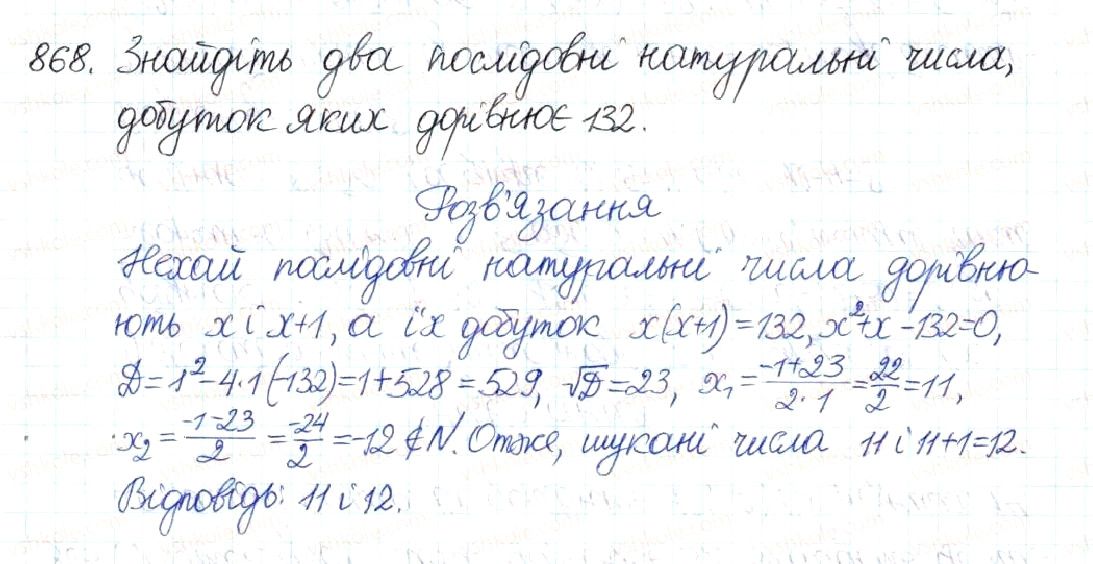 868. Знайдіть два послідовні натуральні числа,
добуток яких дорівнює 132.
Розв'язання
Нехай послідовні натуральні числа дорівню-
ють x і x+1, а їх добуток x(x+1)=132, x²+x-132=0,
D=1²-4·1(-132)=1+528=529, √D=23, x₁=(-1+23)/(2·1)=22/2=11,
x₂=(-1-23)/2=-24/2=-12∉N. Отже, шукані числа 11 і 11+1=12.
Відповідь: 11 і 12.